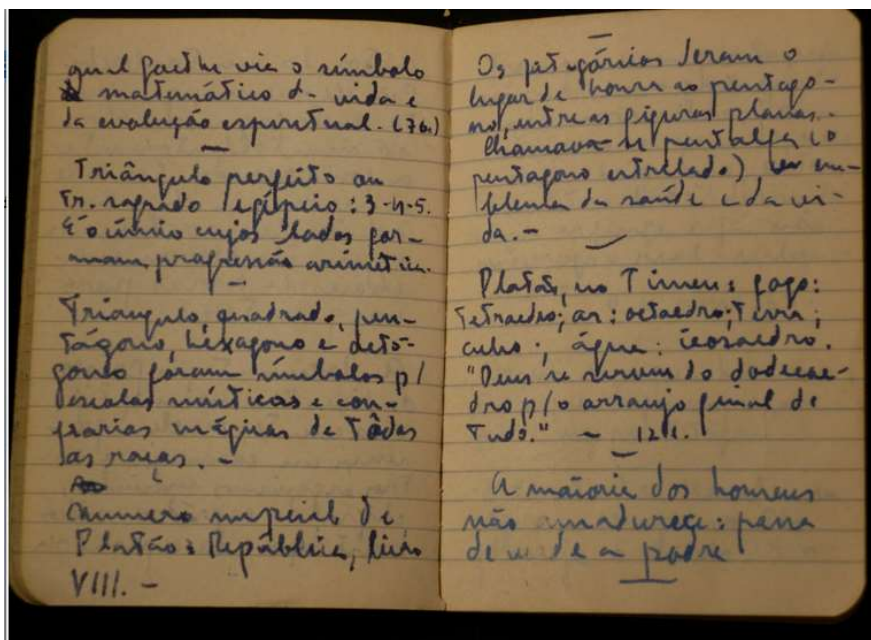 qual Goethe via o símbolo
matemático da vida e
da evolução espiritual. (76.)
Triângulo perfeito ou
Tr. sagrado egípcio: 3-4-5.
É o único cujos lados for-
mam progressão aritmética.
Triângulo, quadrado, pen-
tágono, hexágono e octó-
gono foram símbolos p/
escolas místicas e con-
frarias mágicas de tôdas
as raças. -
número nupcial de
Platão: República, livro
VIII. -
Os pitagóricos deram o
lugar de honra ao pentágo-
no, entre as figuras planas.
Chamava-se pentalfa (o
pentagono estrelado), em-
blema da saúde e da vi-
da. -
Platão, no Timeu: fogo:
Tetraedro; ar: octaedro; Terra:
cubo; água: icosaedro.
"Deus se serviu do dodecae-
dro p/ o arranjo final de
Tudo." -
A maioria dos homens
não amadurece: passa
de verde a podre